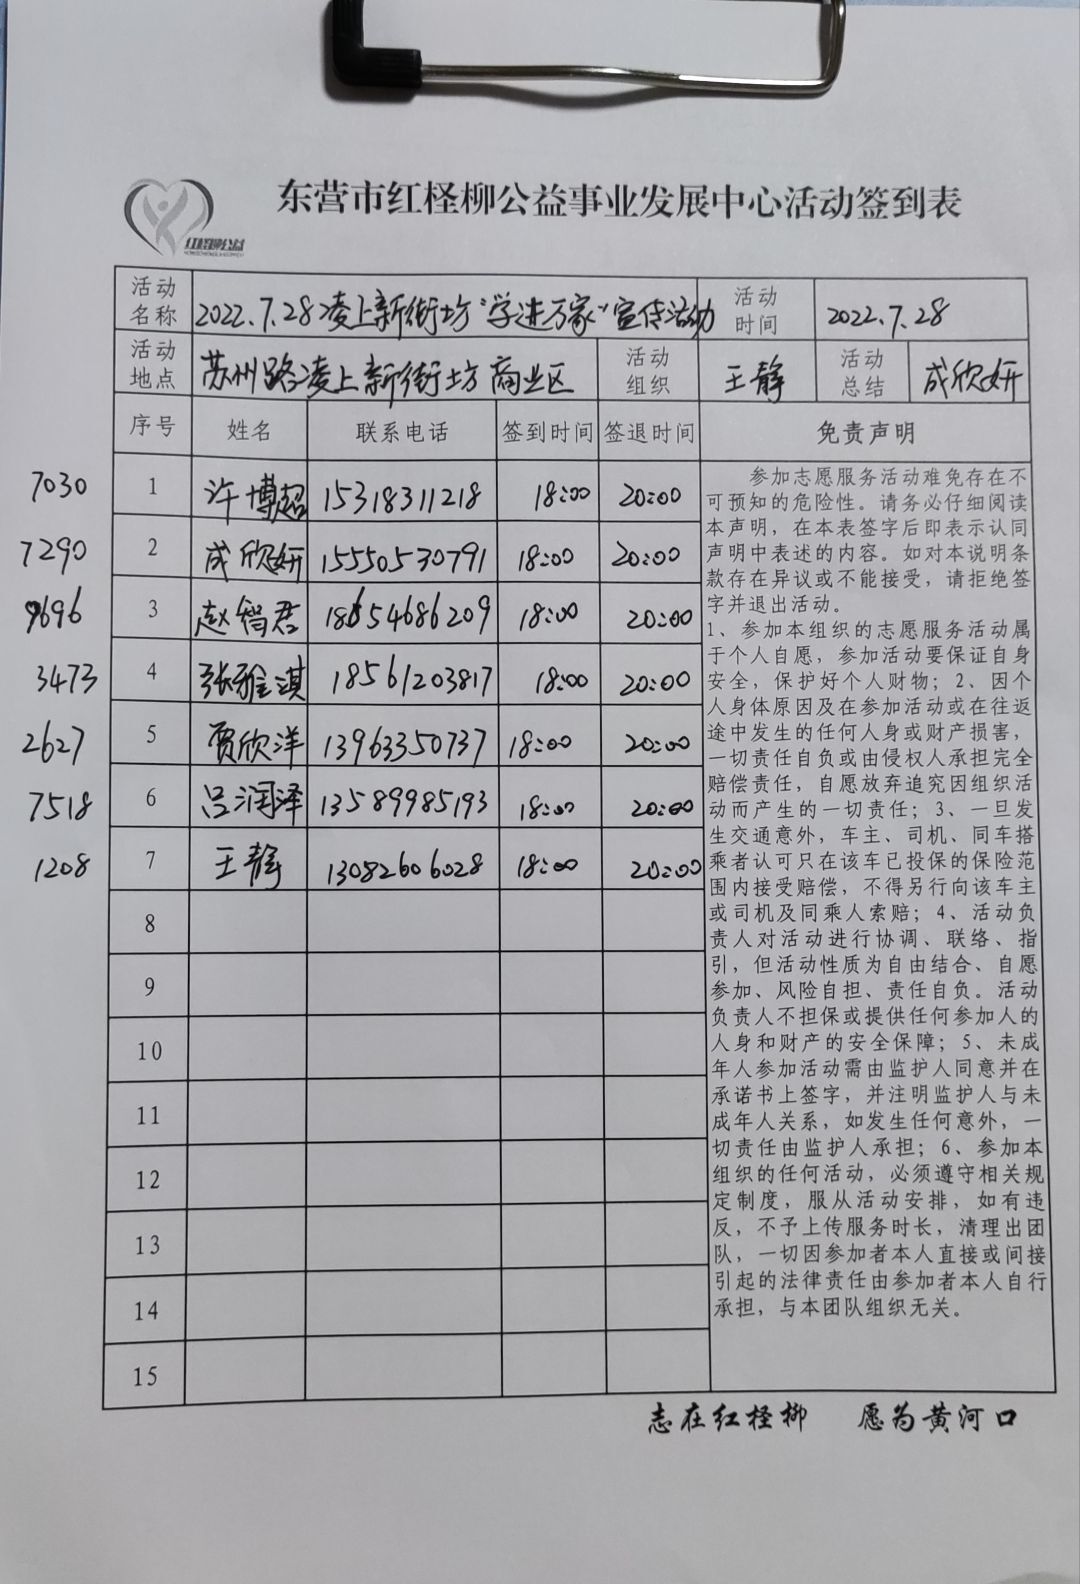 东营市红柽柳公益事业发展中心活动签到表
红柽柳公益
活动名称 2022.7.28凌上新街坊“学进万家”宣传活动 活动时间 2022.7.28
活动地点 苏州路凌上新街坊商业区 活动组织 王静 活动总结 成欣妍
序号 姓名 联系电话 签到时间 签退时间 免责声明
7030 1 许博超 15318311218 18:00 20:00
7290 2 成欣妍 15550530791 18:00 20:00
9696 3 赵智君 18654686209 18:00 20:00
3473 4 张雅淇 18561203817 18:00 20:00
2627 5 贾欣洋 13963350737 18:00 20:00
7518 6 吕润泽 13589985193 18:00 20:00
1208 7 王静 13082606028 18:00 20:00
8
9
10
11
12
13
14
15
参加志愿服务活动难免存在不
可预知的危险性。请务必仔细阅读
本声明，在本表签字后即表示认同
声明中表述的内容。如对本说明条
款存在异议或不能接受，请拒绝签
字并退出活动。
1、参加本组织的志愿服务活动属
于个人自愿，参加活动要保证自身
安全，保护好个人财物；2、因个
人身体原因及在参加活动或在往返
途中发生的任何人身或财产损害，
一切责任自负或由侵权人承担完全
赔偿责任，自愿放弃追究因组织活
动而产生的一切责任；3、一旦发
生交通意外，车主、司机、同车搭
乘者认可只在该车已投保的保险范
围内接受赔偿，不得另行向该车主
或司机及同乘人索赔；4、活动负
责人对活动进行协调、联络、指
引，但活动性质为自由结合、自愿
参加、风险自担、责任自负。活动
负责人不担保或提供任何参加人的
人身和财产的安全保障；5、未成
年人参加活动需由监护人同意并在
承诺书上签字，并注明监护人与未
成年人关系，如发生任何意外，一
切责任由监护人承担；6、参加本
组织的任何活动，必须遵守相关规
定制度，服从活动安排，如有违
反，不予上传服务时长，清理出团
队，一切因参加者本人直接或间接
引起的法律责任由参加者本人自行
承担，与本团队组织无关。
志在红柽柳 愿为黄河口